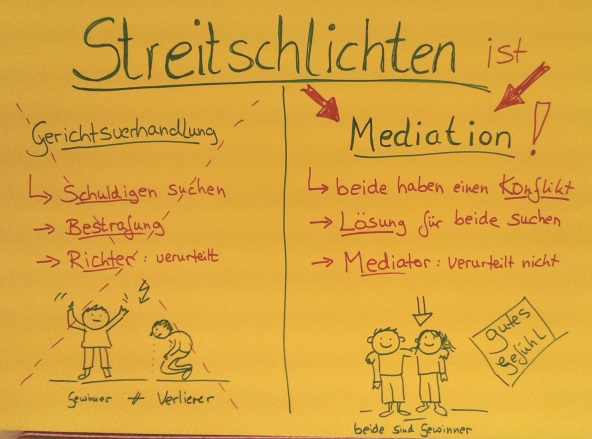 Streitschlichten ist
Gerichtsverhandlung
↳ Schuldigen suchen
→ Bestrafung
→ Richter: verurteilt
Gewinner ≠ Verlierer
Mediation!
↳ beide haben einen Konflikt
→ Lösung für beide suchen
→ Mediator: verurteilt nicht
gutes
Gefühl
beide sind Gewinner